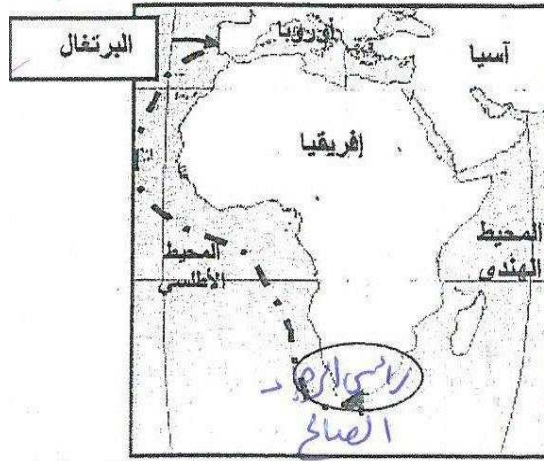 البرتغال
أوروبا
آسيا
إفريقيا
المحيط
الهندي
المحيط
الأطلسي
رائس الرجاء
الصالح